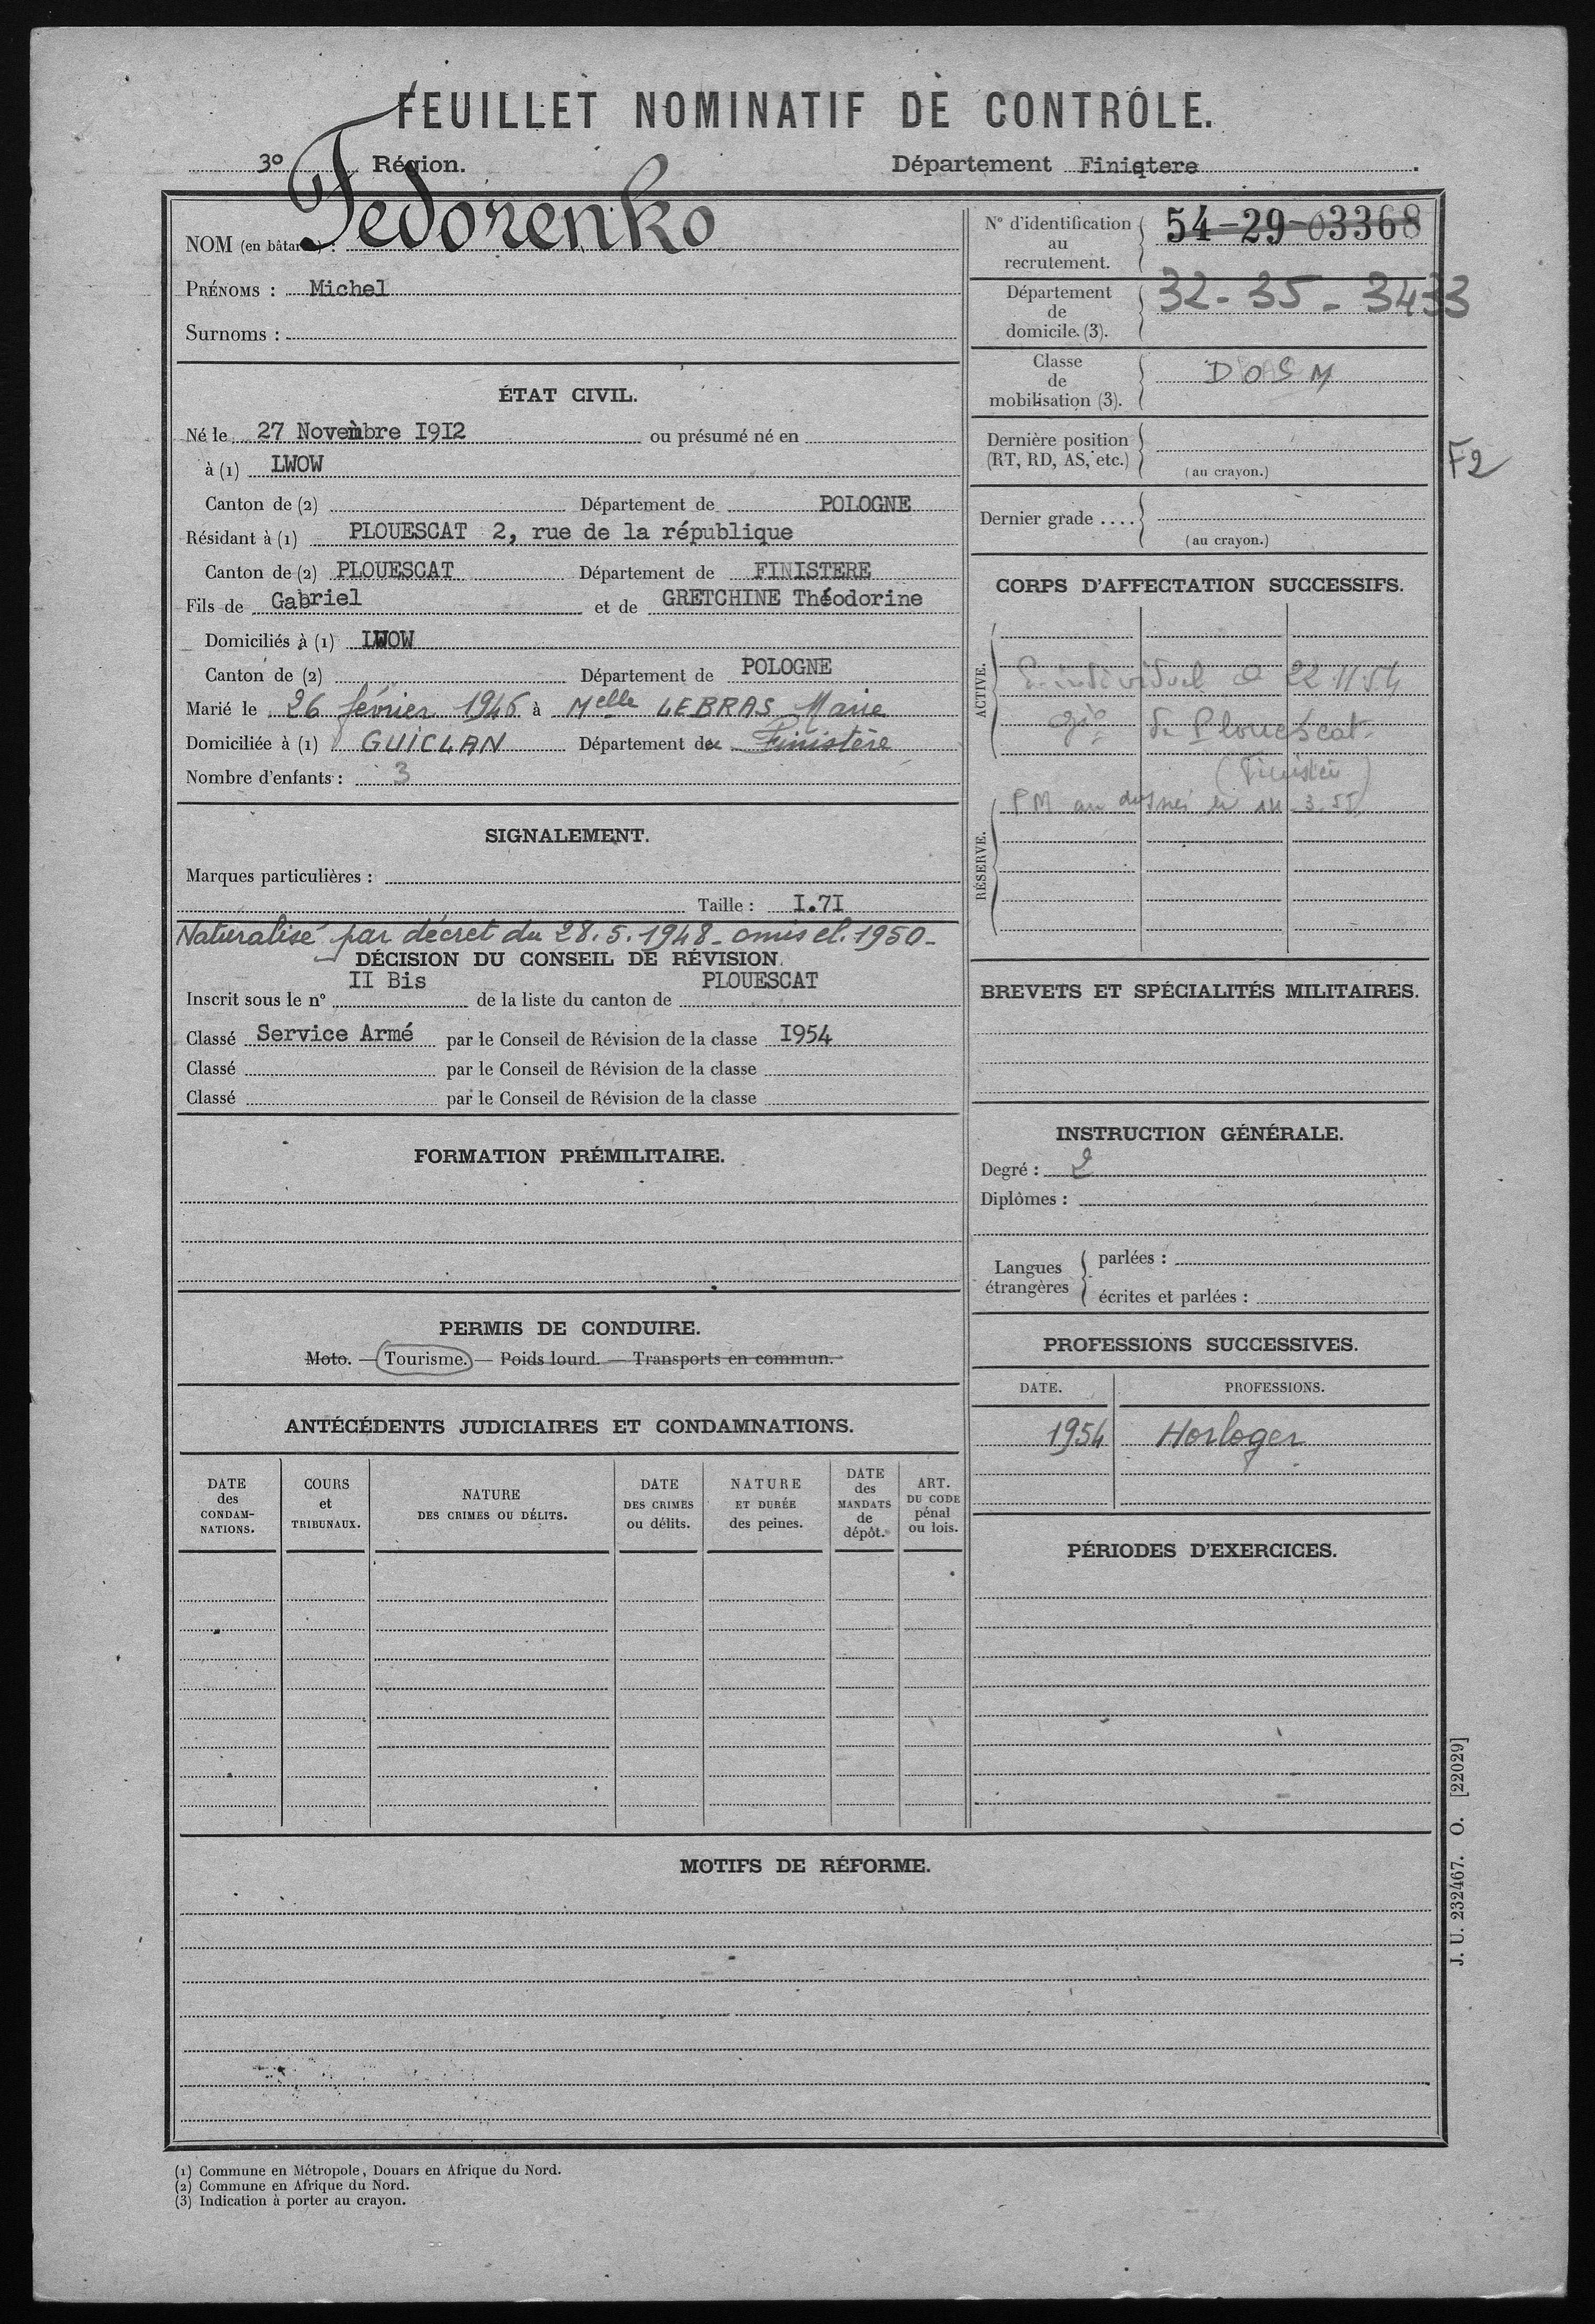 FEUILLET NOMINATIF DE CONTRÔLE.
3° Région.
Département Finiqtere.
NOM (en bâtar ) : Fedorenko
PRÉNOMS : Michel
Surnoms :
ÉTAT CIVIL.
Né le 27 Novembre I9I2 ou présumé né en
à (1) LWOW
Canton de (2) Département de POLOGNE
Résidant à (1) PLOUESCAT 2, rue de la république
Canton de (2) PLOUESCAT Département de FINISTERE
Fils de Gabriel et de GRETCHINE Théodorine
Domiciliés à (1) LWOW
Canton de (2) Département de POLOGNE
Marié le 26 février 1946 à Melle LEBRAS Marie
Domiciliée à (1) GUICLAN Département de Finistère
Nombre d'enfants : 3
SIGNALEMENT.
Marques particulières :
Taille : I.7I
Naturalisé par décret du 28.5.1948 - omis cl. 1950 -
DÉCISION DU CONSEIL DE RÉVISION.
Inscrit sous le n° II Bis de la liste du canton de PLOUESCAT
Classé Service Armé par le Conseil de Révision de la classe I954
Classé par le Conseil de Révision de la classe
Classé par le Conseil de Révision de la classe
FORMATION PRÉMILITAIRE.
PERMIS DE CONDUIRE.
Moto. — Tourisme. — Poids lourd. — Transports en commun.
ANTÉCÉDENTS JUDICIAIRES ET CONDAMNATIONS.
DATE des CONDAM-NATIONS.
COURS et TRIBUNAUX.
NATURE DES CRIMES OU DÉLITS.
DATE DES CRIMES ou délits.
NATURE ET DURÉE des peines.
DATE des MANDATS de dépôt.
ART. DU CODE pénal ou lois.
N° d'identification au recrutement. 54-29-03368
Département de domicile (3). 32-35-3433
Classe de mobilisation (3). DOSM
Dernière position (RT, RD, AS, etc.)
(au crayon.)
F2
Dernier grade ....
(au crayon.)
CORPS D'AFFECTATION SUCCESSIFS.
ACTIVE.
individuel 22.11.54
de Plouescat
(Finistère)
RÉSERVE.
PM au 3.55
BREVETS ET SPÉCIALITÉS MILITAIRES.
INSTRUCTION GÉNÉRALE.
Degré : 2
Diplômes :
Langues étrangères
parlées :
écrites et parlées :
PROFESSIONS SUCCESSIVES.
DATE. PROFESSIONS.
1954 Horloger
PÉRIODES D'EXERCICES.
MOTIFS DE RÉFORME.
J. U. 232467. O. [22029]
(1) Commune en Métropole, Douars en Afrique du Nord.
(2) Commune en Afrique du Nord.
(3) Indication à porter au crayon.